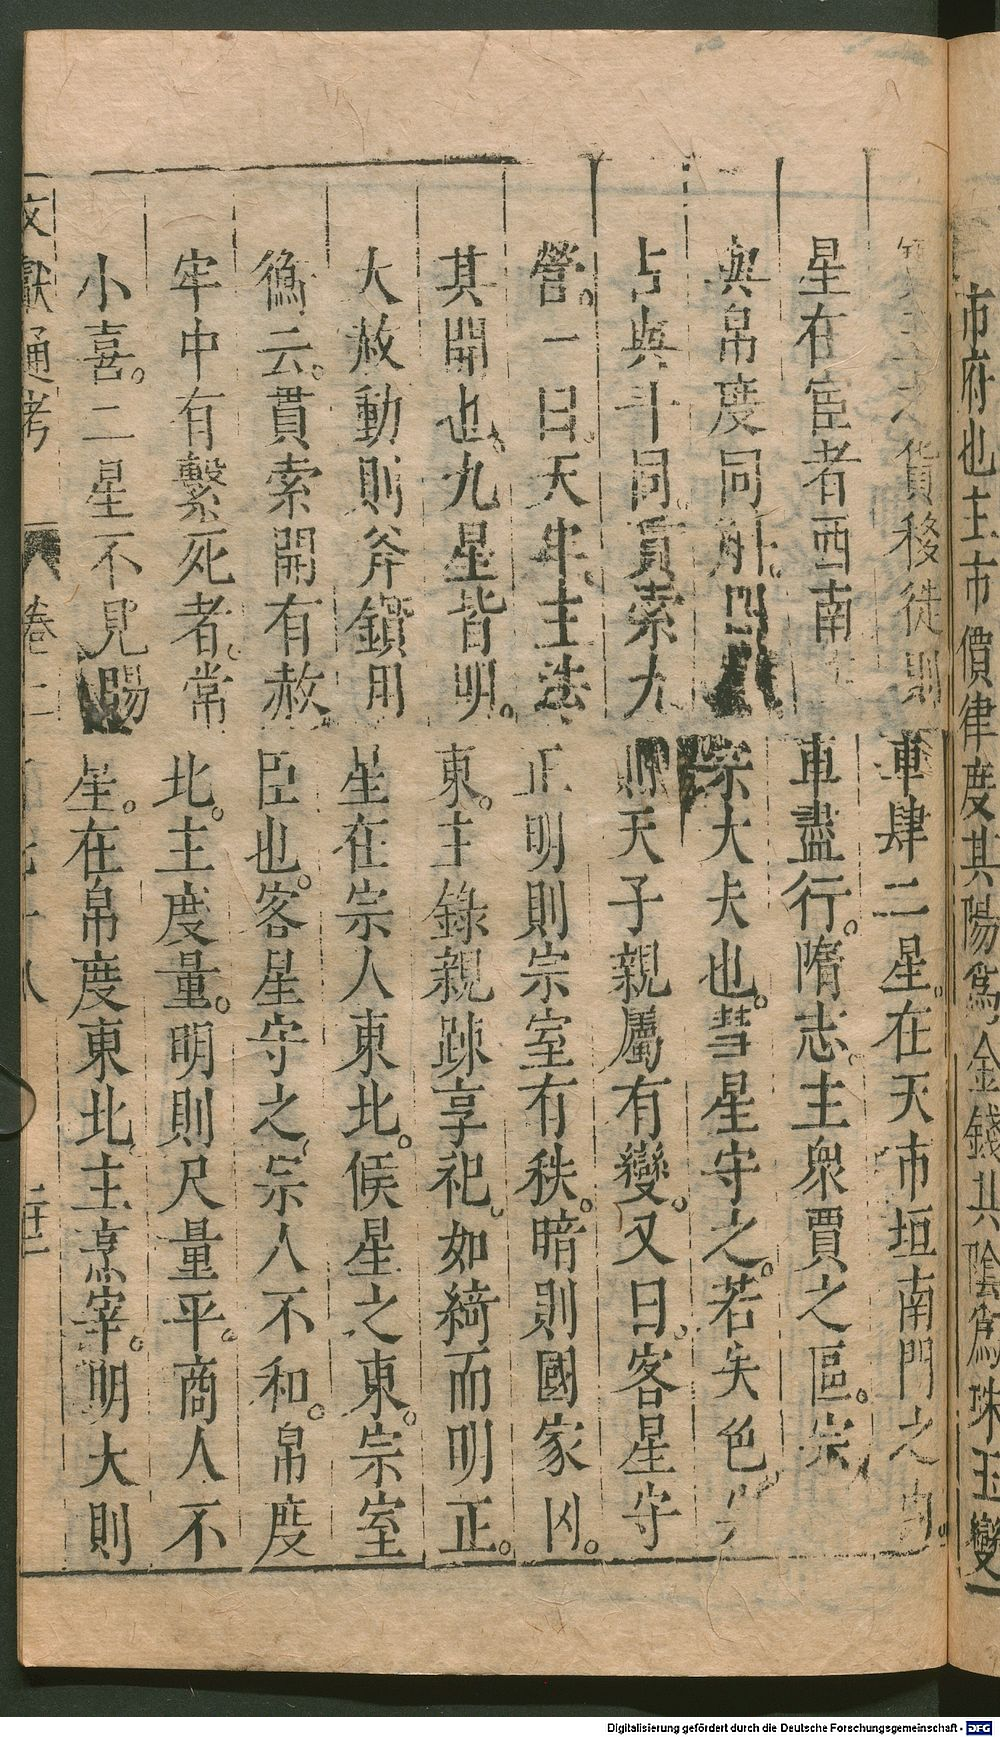 市府也主市價律度其陽爲金錢其陰爲珠玉變
之貨移徙則車肆二星在天市垣南門之內
星在宦者西南車盡行隋志主衆賈之區宗
與帛度同宗大夫也彗星守之若失色
占與斗同貫索九則天子親屬有變又曰客星守
營一曰天牢主法正明則宗室有秩暗則國家凶
其開也九星皆明東主錄親疎享祀如綺而明正
大赦動則斧鑕用星在宗人東北候星之東宗室
緯云貫索開有赦臣也客星守之宗人不和帛度
牢中有繫死者常北主度量明則尺量平商人不
小喜二星不見賜星在帛度東北主烹宰明大則
文獻通考 卷二
Digitalisierung gefördert durch die Deutsche Forschungsgemeinschaft - DFG